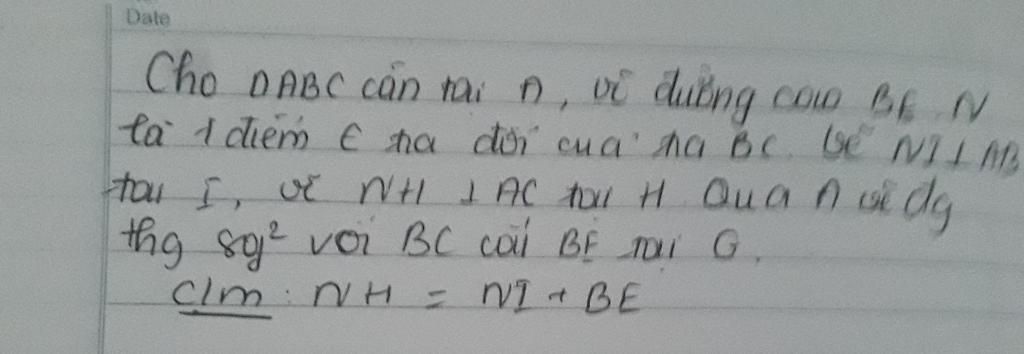 Date
Cho ΔABC cân tại A, vẽ đường cao BE. N
là 1 điểm ∈ tia đối của tia BC. Vẽ NI ⊥ AB
tại I, vẽ NH ⊥ AC tại H Qua A vẽ dg
thg sg² với BC cắt BE tại G.
C/m : NH = NI + BE